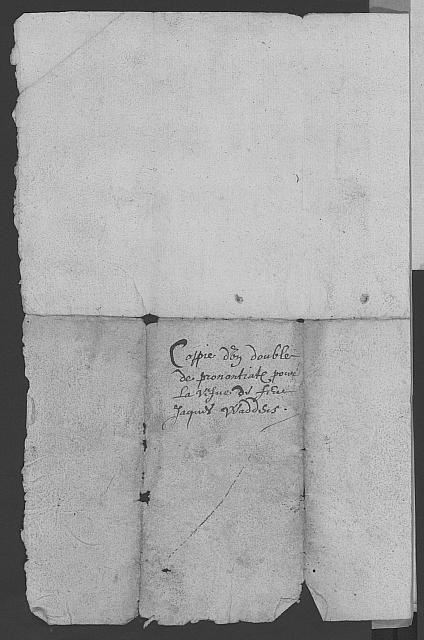 Coppie d'ũ double
de pronontiatõ pour
la vefve de feu
Jaques Waddeis.